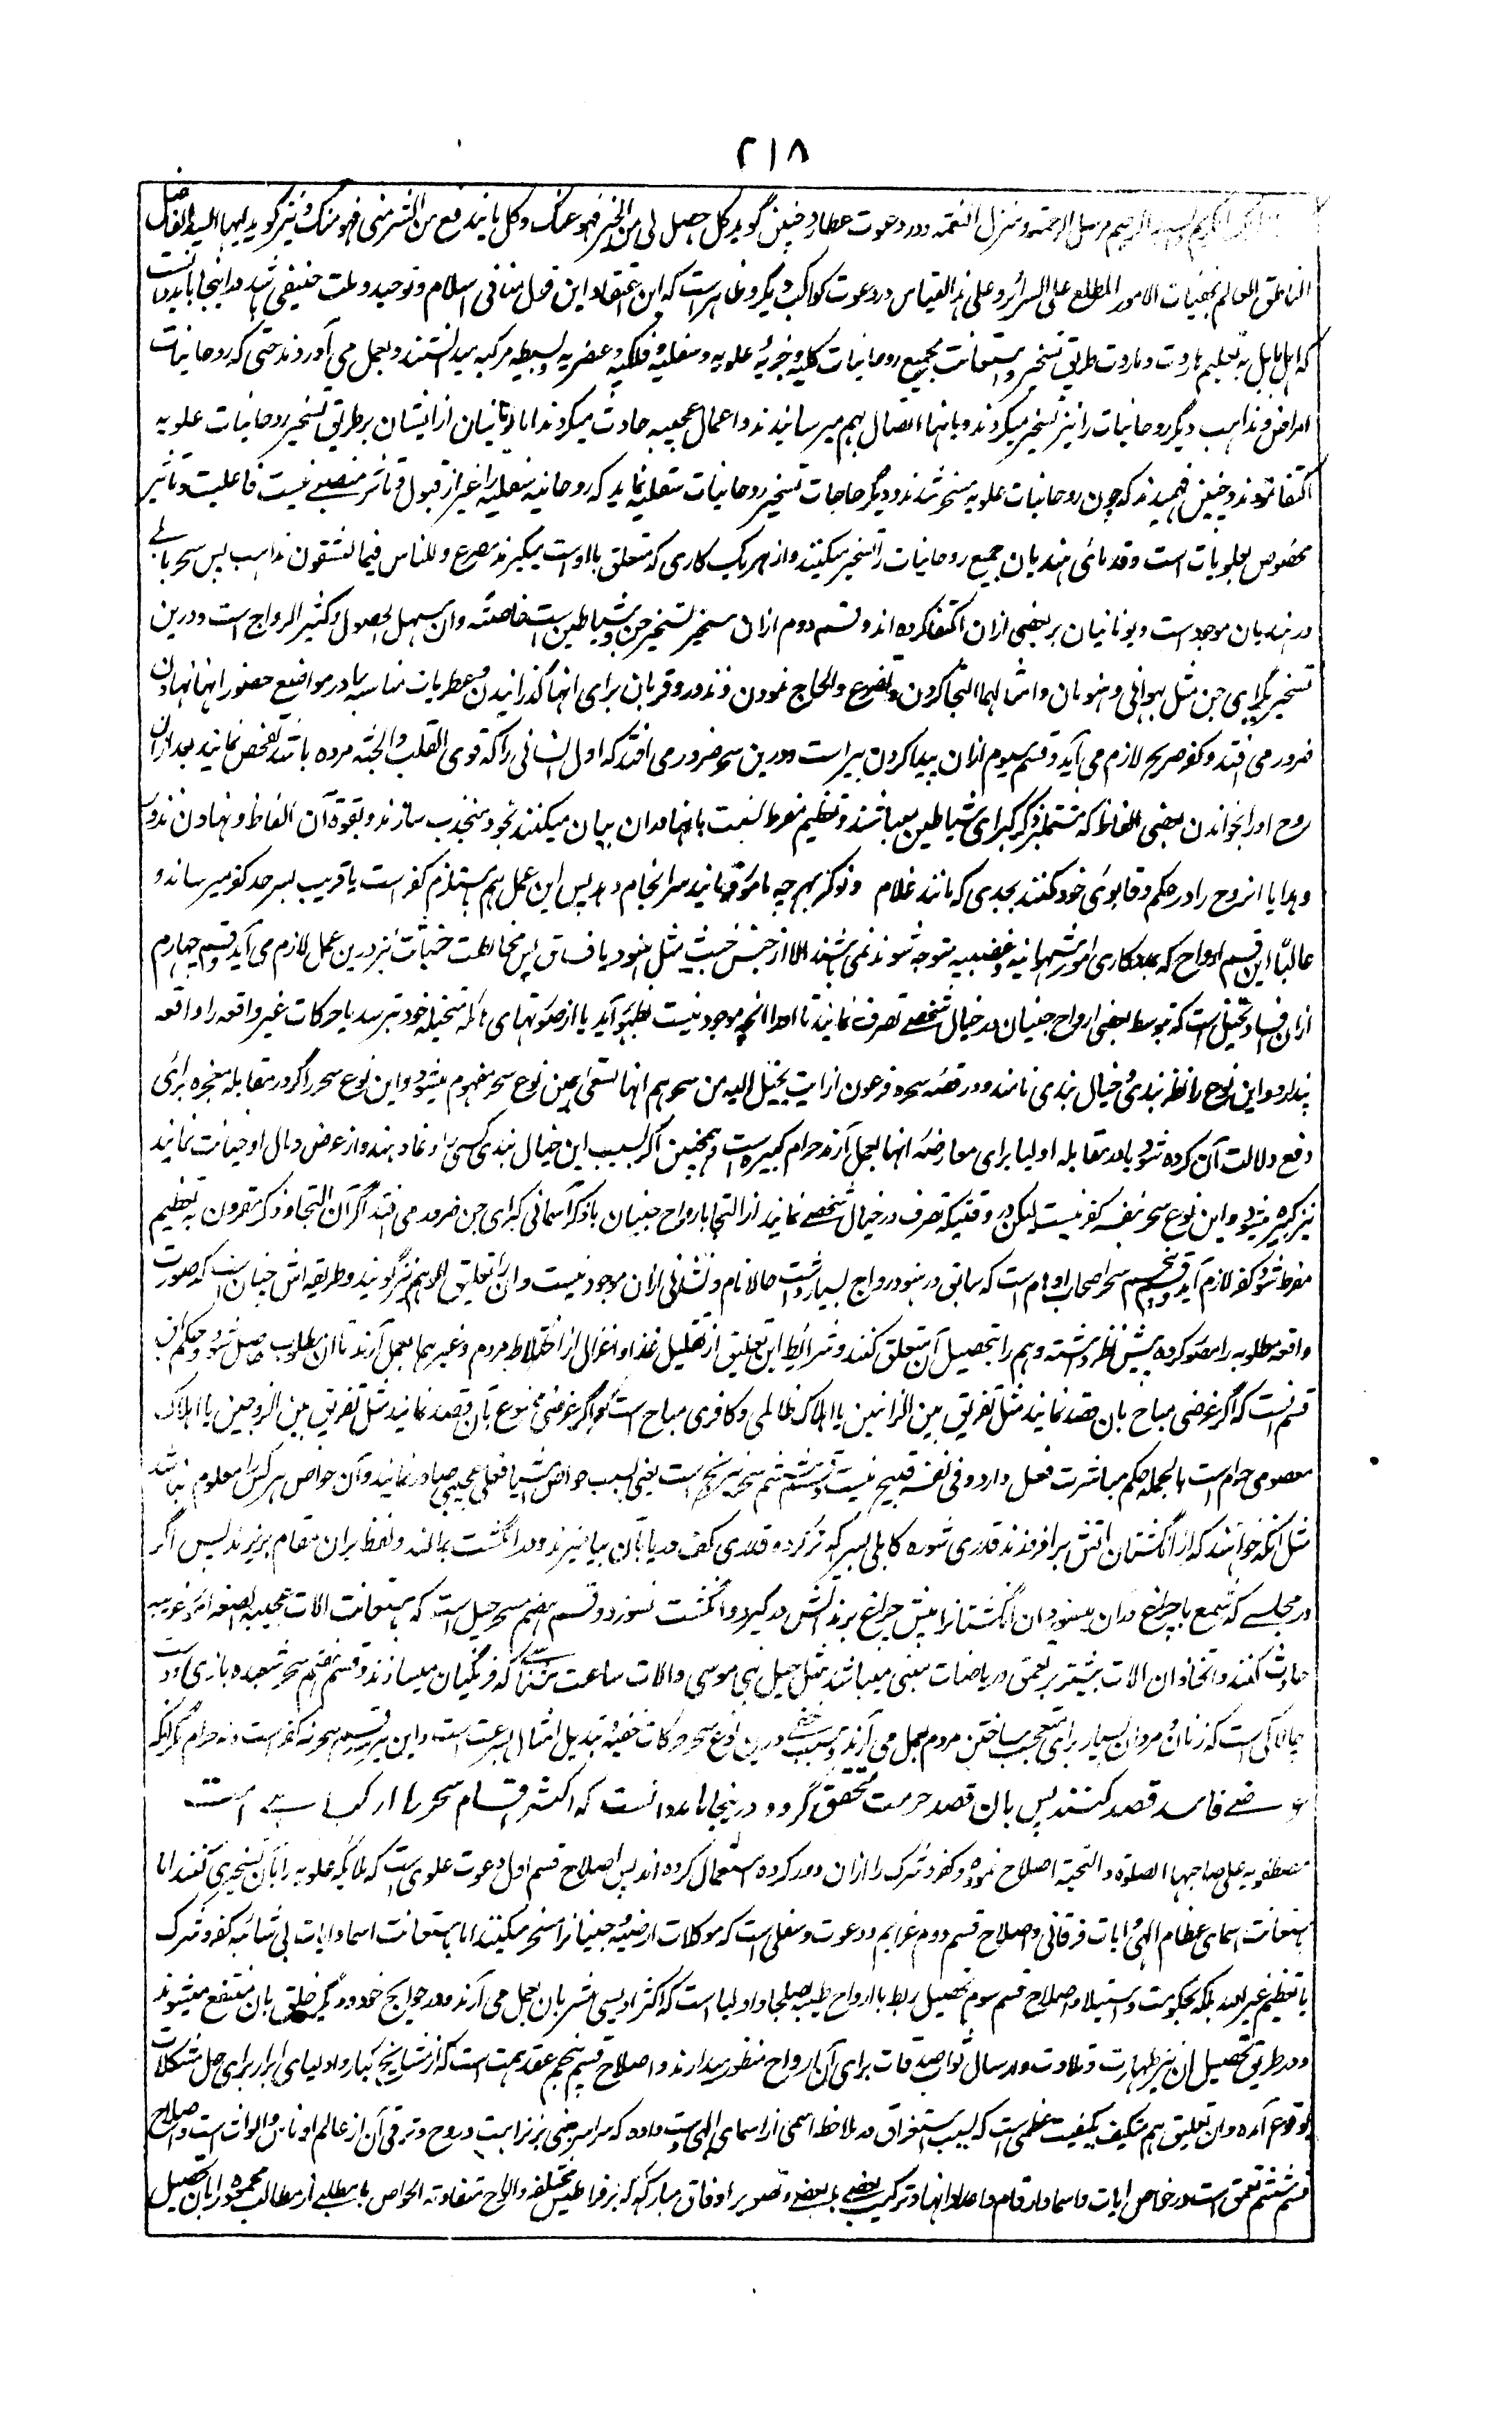 ۲۱۸
الرحیم مرسل الرحمة و منزل النقمة و در دعوت عطارد چنین گوید کل ما حصل لی من الخیر فهو عنک و کل ما یندفع من الشر منی فهو منک و نیز گوید ایها السید الفاضل
الناطق العالم بخفیات الامور المطلع علی السرائر و علی هذا القیاس در دعوت کواکب دیگر و ظاهر است که این اعتقاد و این قول منافی اسلام و توحید و ملت حنیفی باشد و در اینجا باید دانست
که اهل بابل به تعلیم هاروت و ماروت طریق تسخیر و استعانت بجمیع روحانیات کلیه و جزئیه علویه و سفلیه و فلکیه و عنصریه و بسیطه و مرکبه میدانستند و بعمل می آوردند حتی که روحانیات
امراض و مذاهب و دیگر روحانیات را نیز تسخیر میکردند و با آنها اتصال بهم میرسانیدند و اعمال عجیبه حادث میکردند اما یونانیان از ایشان بر طریق تسخیر روحانیات علویه
اکتفا نمودند و چنین فهمیدند که چون روحانیات علویه مسخر شدند دیگر حاجات تسخیر روحانیات سفلیه نماند که روحانیه سفلیه را غیر از قبول و تأثر منصبی نیست فاعلیت و تأثیر
مخصوص بعلویات است و قدمای هندیان جمیع روحانیات را تسخیر میکنند و از هر یک کاری که متعلق با اوست میگیرند مصرع و للناس فیما یعشقون مذاهب پس سحر بابلی
در هندیان موجود است و یونانیان بر بعضی ازان اکتفا کرده اند و قسم دوم ازان سحر تسخیر جن و شیاطین است خاصة و آن سهل الحصول و کثیر الرواج است و درین
تسخیر بکبرای جن مثل بهوانی و هنومان و امثالهما التجا کردن و تضرع و الحاح نمودن و نذور و قربان برای آنها گذرانیدن و عطریات مناسبه را در مواضع حضور آنها نهادن
ضرور می افتد و کفر صریح لازم می آید و قسم سیوم ازان پیدا کردن بیر است و درین سحر ضرور می افتد که اول انسانی را که قوی القلب و الجثه مرده باشد تفحص نمایند بعد ازان
روح او را بخواندن بعضی الفاظ که مشتمل بر ذکر کبرای شیاطین میباشند و تعظیم مفرط نسبت بانها دران بیان میکنند بخود منجذب سازند و بقوة آن الفاظ و نهادن نذور
و هدایا آن روح را در حکم و قابوی خود کنند بحدی که مانند غلام و نوکر بهر چه مأمور نمایند سر انجام دهد پس این عمل هم مستلزم کفر است یا قریب بسرحد کفر میرساند و
غالبا این قسم ارواح که بمددکاری امور شهوانیه و غضبیه متوجه شوند نمی باشند الا از جنس خبیث مثل هنود یا فساق پس مخالطت خبثات نیز درین عمل لازم می آید و قسم چهارم
ازان فساد تخیل است که بتوسط بعضی ارواح جنیان در خیال شخصی تصرف نمایند تا او را آنچه موجود نیست بنظر آید یا از صورتهای هائله متخیله خود بترسد یا حرکات غیر واقعه را واقعه
پندارد و این نوع را نظر بندی و خیال بندی نامند و در قصه سحره فرعون از آیت یخیل الیه من سحرهم انها تسعی همین نوع سحر مفهوم میشود و این نوع سحر را اگر در مقابله معجزه برای
دفع دلالت آن کرده شود یا در مقابله اولیا برای معارضه آنها بعمل آرند حرام کبیره است و همچنین اگر بسبب این خیال بندی کسی را دغا دهند و از عرض و مال او خیانت نمایند
نیز کبیره میشود و این نوع سحر بنفسه کفر نیست لیکن در وقتیکه تصرف در خیال شخصی نمایند از التجا بارواح جنیان یا ذکر اسمای کبرای جن ضرور می افتد اگر آن التجا و ذکر مقرون به تعظیم
مفرط شود کفر لازم آید و قسم پنجم سحر اصحاب اوهام است که سابق در هنود رواج بسیار داشت حالا نام و نشانی ازان موجود نیست و آن را تعلیق الوهم نیز گویند و طریقه اش چنان است که صورت
واقعه مطلوبه را متصور کرده پیش نظر داشته و هم را بتحصیل آن متعلق کنند و شرائط این تعلیق از تقلیل غذا و انعزال از اختلاط مردم و غیرهما بعمل آرند تا آن مطلوب حاصل شود و حکم این
قسم آنست که اگر غرضی مباح بان قصد نمایند مثل تفریق بین الزانیین یا اهلاک ظالمی و کافری مباح است و اگر غرضی ممنوع بآن قصد نمایند مثل تفریق بین الزوجین یا اهلاک
معصومی حرام است بالجمله حکم مباشرت فعل دارد و فی نفسه قبیح نیست و قسم ششم سحر نیرنج است یعنی بسبب خواص اشیا فعل عجیبی صادر نمایند و آن خواص هر کس را معلوم نباشد
مثل آنکه خواهند که از انگشتان آتش برافروزند قدری شوره کابلی بسرکه تر کرده و قدری کف دریا بآن بیامیزند و در انگشت بمالند و نفط بران مقام بریزند پس اگر
در مجلسی که شمع یا چراغ دران میسوزد آن انگشتان را پیش چراغ برند آتش در گیرد و انگشت نسوزد و قسم هفتم سحر حیل است که باستعانت آلات عجیبه الصنعه امور غریبه
حادث کنند و اتخاذ آن آلات بیشتر بر تعمق در ریاضیات مبنی میباشد مثل حیل بنی موسی و آلات ساعت شناسی که فرنگیان میسازند و قسم هشتم سحر شعبده بازی و دست
چالاکی است که زنان و مردان بسیار برای تعجب ساختن مردم بعمل می آرند و سبب خفی درین نوع سحر حرکات خفیه تبدیل امثال بسرعت است و این قسم سحر نه کفر است و نه حرام مگر آنکه
غرضی فاسد قصد کنند پس بان قصد حرمت متحقق گردد و درینجا باید دانست که اکثر اقسام سحر را
مصطفویه علی صاحبها الصلوة و التحیة اصلاح نموده و کفر و شرک را ازان دور کرده استعمال کرده اند پس اصلاح قسم اول دعوت علوی است که ملائکه علویه را بآن تسخیر می کنند اما
باستعانت اسمای عظام الهی و آیات فرقانی و اصلاح قسم دوم عزایم و دعوت سفلی است که موکلات ارضیه و جنیان را مسخر میکنند اما باستعانت اسما و آیات بی شائبه کفر و شرک
یا تعظیم غیر الله بلکه بحکومت و استیلا و اصلاح قسم سوم تحصیل ربط با ارواح طیبه صلحا و اولیا است که اکثر اویسی مشربان بعمل می آرند و در حوایج خود و دیگر خلق بان منتفع میشوند
و در طریق تحصیل آن نیز طهارت و تلاوت و ارسال ثواب صدقات برای آن ارواح منظور میدارند و اصلاح قسم پنجم عقد همت است که از مشایخ کبار و اولیای ابرار برای حل مشکلات
بوقوع آمده و آن تعلیق هم متکیف بکیفیت عظمی است که بسبب استغراق در ملاحظه اسمی از اسمای الهی دست داده و روح و ترقی آن از عالم است و اصلاح
قسم ششم تعمق است در خواص آیات و اسما و ارقام و اعداد آنها و ترکیب بعضی با بعضی و تصویر اوفاق مبارکه برای مطلبی از مطالب محموده بآن تحصیل